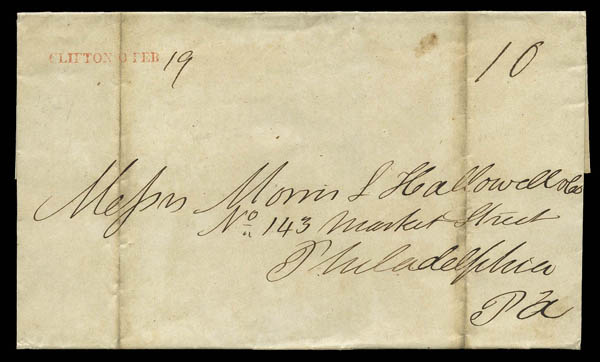 CLIFTON O FEB 19 10
Messrs Morris L Hallowell & Co
No 143 Market Street
Philadelphia
Pa